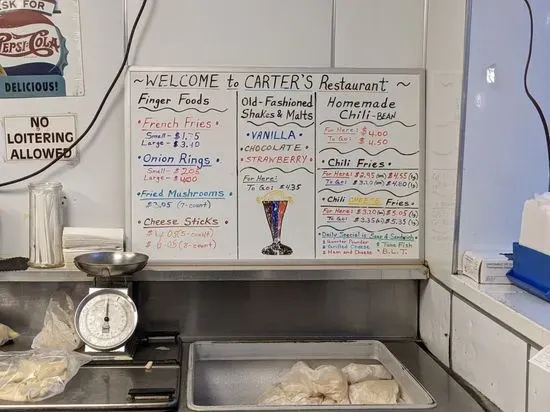 ASK FOR
PEPSI-COLA
DELICIOUS!
NO
LOITERING
ALLOWED
~ WELCOME to CARTER'S Restaurant ~
Finger Foods
• French Fries •
Small - $1.75
Large - $3.10
• Onion Rings •
Small - $2.05
Large -
• Fried Mushrooms •
$3.05 (7-count)
• Cheese Sticks •
(5-count)
(8-count)
Old-Fashioned
Shakes & Malts
• VANILLA •
CHOCOLATE
• STRAWBERRY •
For Here:
To Go: $4.35
Homemade
Chili-BEAN
For Here: $4.00
To Go: $4.50
• Chili Fries •
For Here: $2.95 (sm) $4.55 (lg)
To Go: $3.20 (sm) $4.80 (lg)
• Chili CHEESE Fries •
For Here: $3.20 (sm) $5.05 (lg)
To Go: $3.35 (sm) $5.35 (lg)
Daily Special is Soup & Sandwich
Quarter Pounder
Grilled Cheese
Ham and Cheese
Tuna Fish
B.L.T.